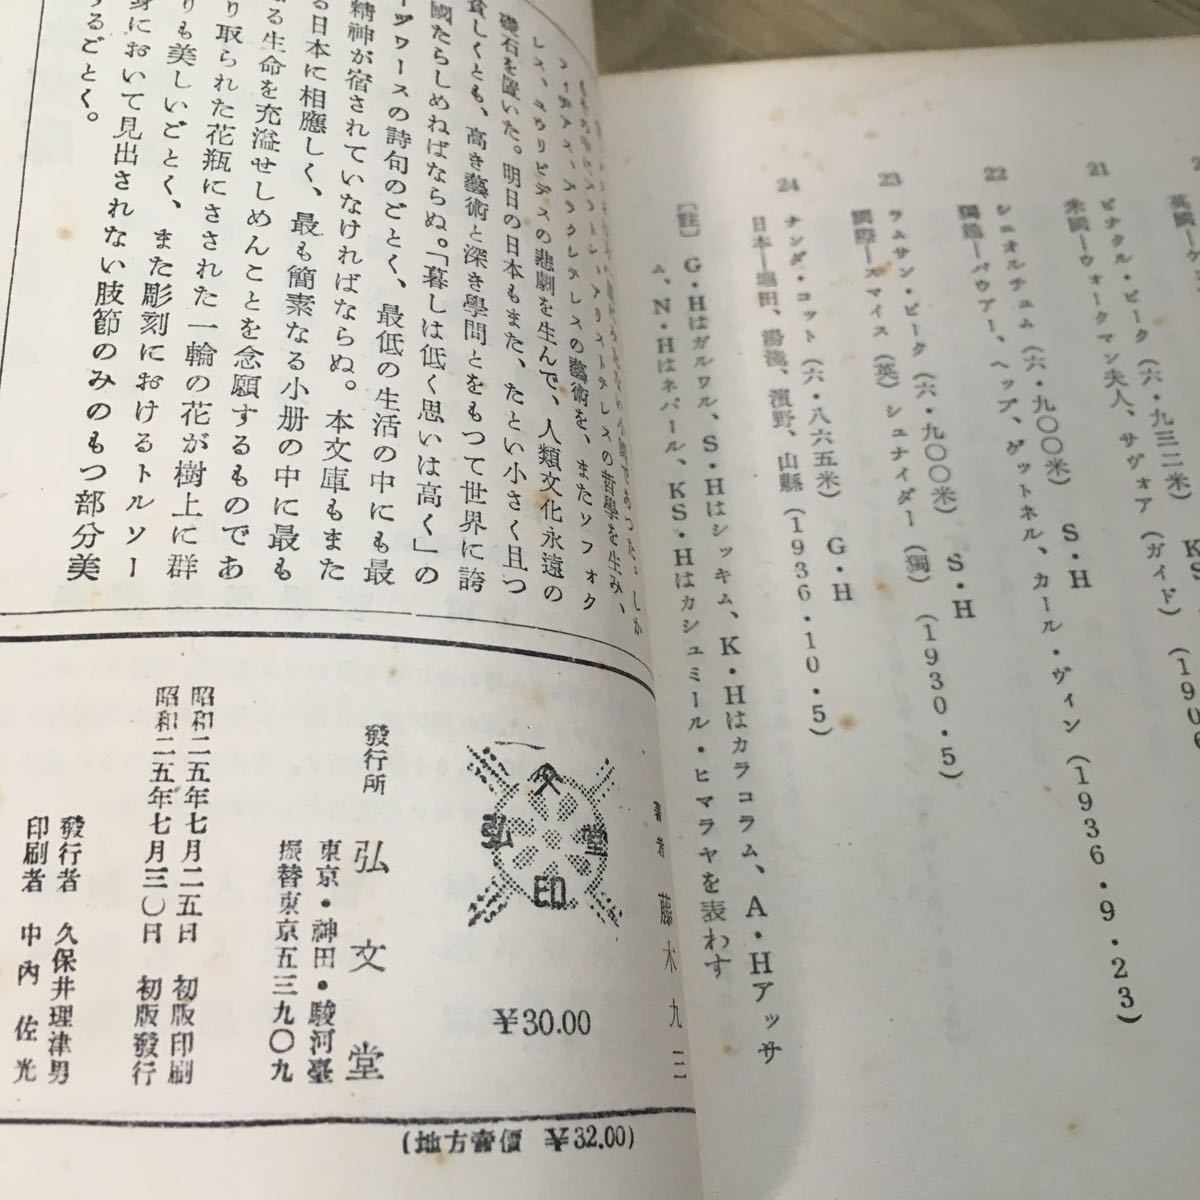 英國―
21 ピナクル・ピーク（六・九三二米） KS
米國―ウォークマン夫人、サヴォア（ガイド）（1906
22 シニオルチュム（六・九〇〇米） S・H
獨逸―バウアー、ヘップ、ゲットネル、カール・ヴィン（1936・9・23）
23 ラムサン・ピーク（六・九〇〇米） S・H
國際―スマイス（英）シュナイダー（獨）（1930・5）
24 ナンダ・コット（六・八六五米） G・H
日本―堀田、湯淺、濱野、山縣（1936・10・5）
〔註〕G・Hはガルワル、S・Hはシッキム、K・Hはカラコラム、A・Hアッサ
ム、N・Hはネパール、KS・Hはカシュミール・ヒマラヤを表わす
であつた。しか
アリストテレスの哲學を生み、
の藝術を、またソフォク
レス、エウリピデスの悲劇を生んで、人類文化永遠の
礎石を置いた。明日の日本もまた、たとい小さく且つ
貧しくとも、高き藝術と深き學問とをもつて世界に誇
國たらしめねばならぬ。「暮しは低く思いは高く」の
ーヅワースの詩句のごとく、最低の生活の中にも最
精神が宿されていなければならぬ。本文庫もまた
る日本に相應しく、最も簡素なる小册の中に最も
る生命を充溢せしめんことを念願するものであ
り取られた花瓶にさされた一輪の花が樹上に群
りも美しいごとく、また彫刻におけるトルソー
身において見出されない肢節のみのもつ部分美
するごとく。
著者 藤木九三
弘文堂印
¥30.00
發行所 弘文堂
東京・神田・駿河臺
振替東京五三九〇九
昭和二五年七月二五日 初版印刷
昭和二五年七月三〇日 初版發行
發行者 久保井理津男
印刷者 中內佐光
（地方賣價 ¥32.00）